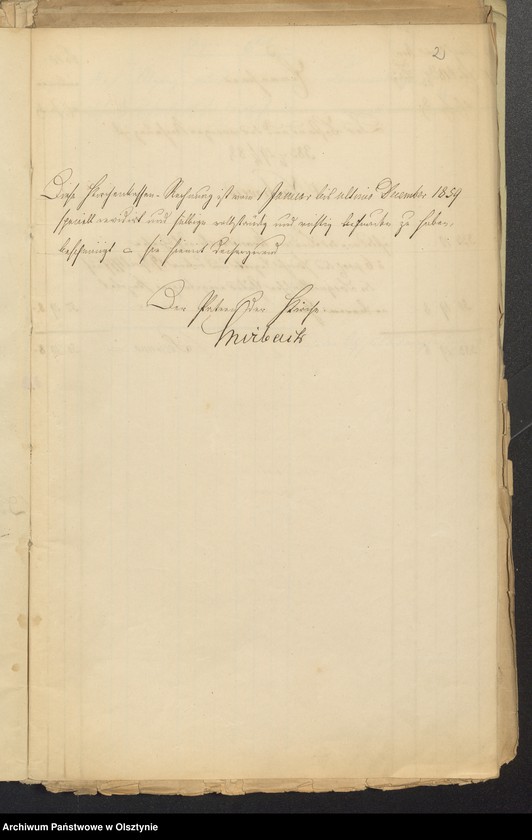 2
Diese Kirchenkassen-Rechnung ist vom 1 Januar bis ultimo December 1859
speciell revidirt und selbige vollständig und richtig befunden zu haben,
bescheinigt hiermit
Der Patron der Kirche
Mirbach
Archiwum Państwowe w Olsztynie